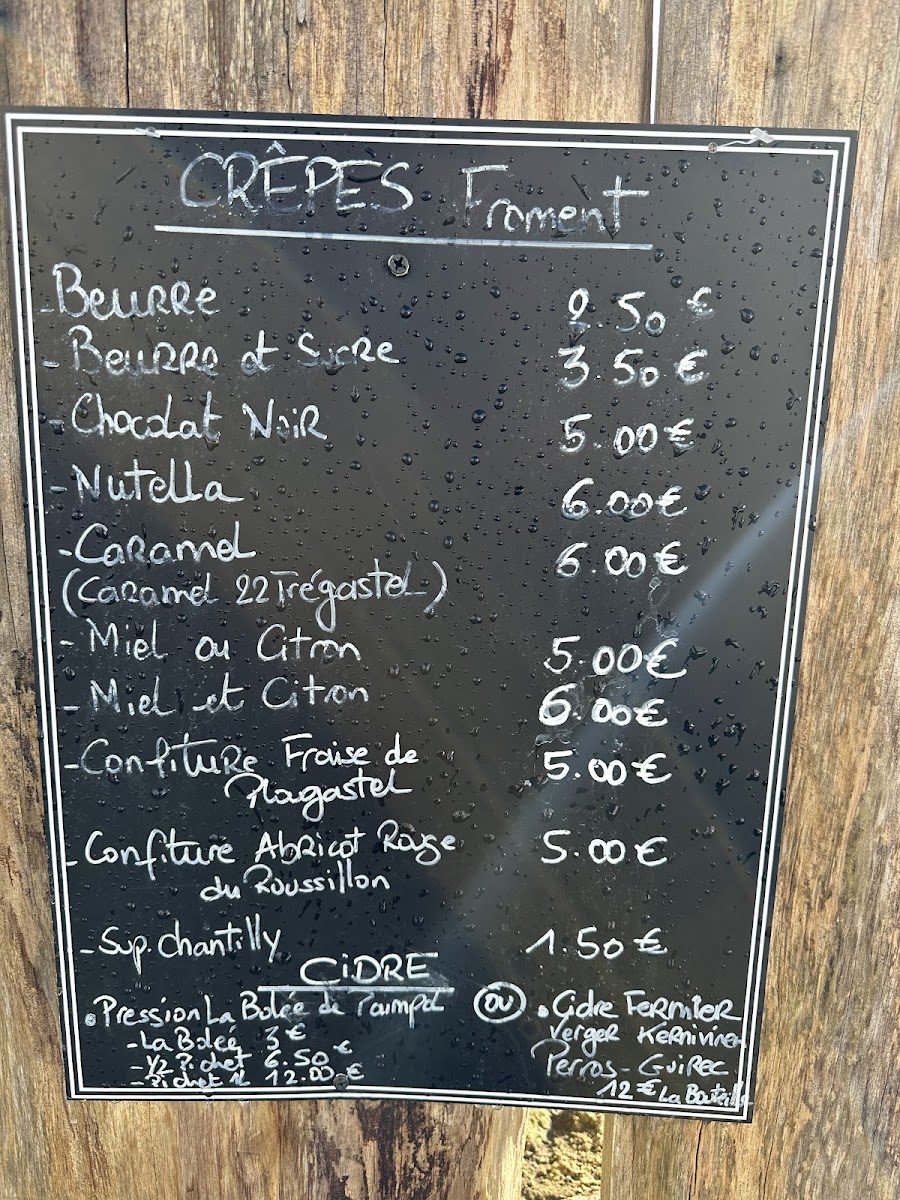 CRÊPES Froment
- Beurre 2.50 €
- Beurre et Sucre 3.50 €
- Chocolat Noir 5.00 €
- Nutella 6.00 €
- Caramel 6.00 €
(Caramel 22 Trégastel)
- Miel ou Citron 5.00 €
- Miel et Citron 6.00 €
- Confiture Fraise de 5.00 €
Plougastel
- Confiture Abricot Rouge 5.00 €
du Roussillon
- Sup. chantilly 1.50 €
CIDRE
• Pression La Bolée de Paimpol
- La Bolée 3 €
- 1/2 Pichet 6.50 €
- Pichet 1L 12.00 €
OU
• Cidre Fermier
Verger
Perros-Guirec
12 € La Bouteille